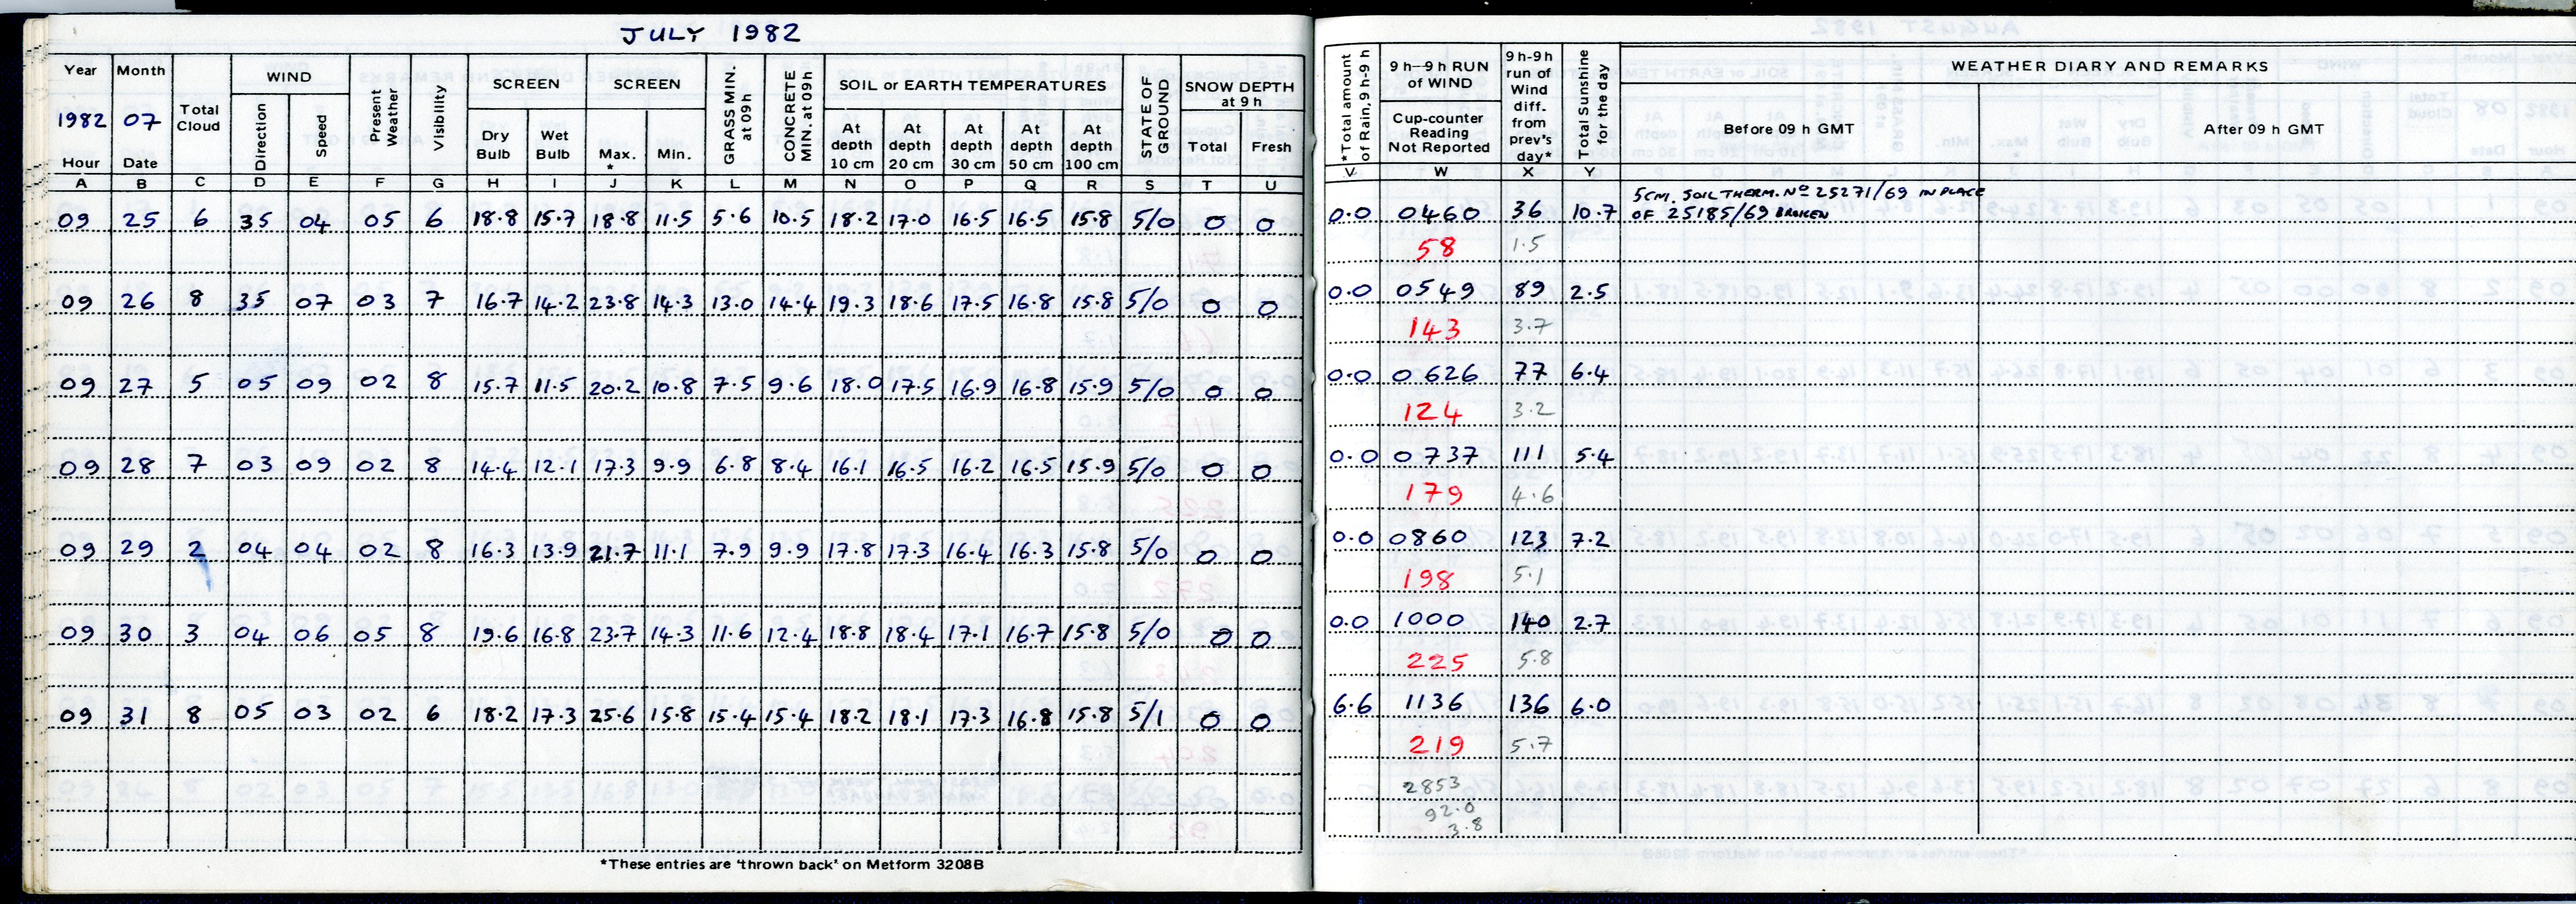 JULY 1982
Year Month Total Cloud WIND Present Weather Visibility SCREEN SCREEN GRASS MIN. at 09h CONCRETE MIN. at 09h SOIL or EARTH TEMPERATURES STATE OF GROUND SNOW DEPTH at 9 h
1982 07 Direction Speed Dry Bulb Wet Bulb Max.* Min. At depth 10 cm At depth 20 cm At depth 30 cm At depth 50 cm At depth 100 cm Total Fresh
Hour Date
A B C D E F G H I J K L M N O P Q R S T U
09 25 6 35 04 05 6 18.8 15.7 18.8 11.5 5.6 10.5 18.2 17.0 16.5 16.5 15.8 5/0 0 0
09 26 8 35 07 03 7 16.7 14.2 23.8 14.3 13.0 14.4 19.3 18.6 17.5 16.8 15.8 5/0 0 0
09 27 5 05 09 02 8 15.7 11.5 20.2 10.8 7.5 9.6 18.0 17.5 16.9 16.8 15.9 5/0 0 0
09 28 7 03 09 02 8 14.4 12.1 17.3 9.9 6.8 8.4 16.1 16.5 16.2 16.5 15.9 5/0 0 0
09 29 2 04 04 02 8 16.3 13.9 21.7 11.1 7.9 9.9 17.8 17.3 16.4 16.3 15.8 5/0 0 0
09 30 3 04 06 05 8 19.6 16.8 23.7 14.3 11.6 12.4 18.8 18.4 17.1 16.7 15.8 5/0 0 0
09 31 8 05 03 02 6 18.2 17.3 25.6 15.8 15.4 15.4 18.2 18.1 17.3 16.8 15.8 5/1 0 0
*These entries are 'thrown back' on Metform 3208B
*Total amount of Rain, 9 h-9 h 9 h–9 h RUN of WIND 9 h-9h run of Wind diff. from prev's day* Total Sunshine for the day WEATHER DIARY AND REMARKS
Cup-counter Reading Not Reported Before 09 h GMT After 09 h GMT
V W X Y
5CM. SOIL THERM. Nº 25271/69 IN PLACE
0.0 0460 36 10.7 OF 25185/69 BROKEN
58 1.5
0.0 0549 89 2.5
143 3.7
0.0 0626 77 6.4
124 3.2
0.0 0737 111 5.4
179 4.6
0.0 0860 123 7.2
198 5.1
0.0 1000 140 2.7
225 5.8
6.6 1136 136 6.0
219 5.7
2853
92.0
3.8